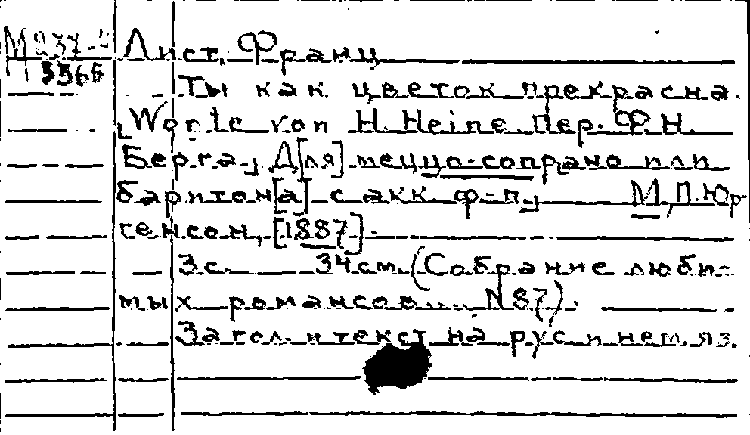 М937-4 Лист, Франц
П 5366
Ты как цветок прекрасна.
[Worte von H. Heine. Пер. Ф.Н.
Берга., Д[ля] меццо-сопрано или
баритон[а] с акк ф-п., М, П. Юр
генсон, [1887].
3с. 34см. (Собрание люби-
мых романсов... N 87).
Загол. и текст на рус и нем. яз.